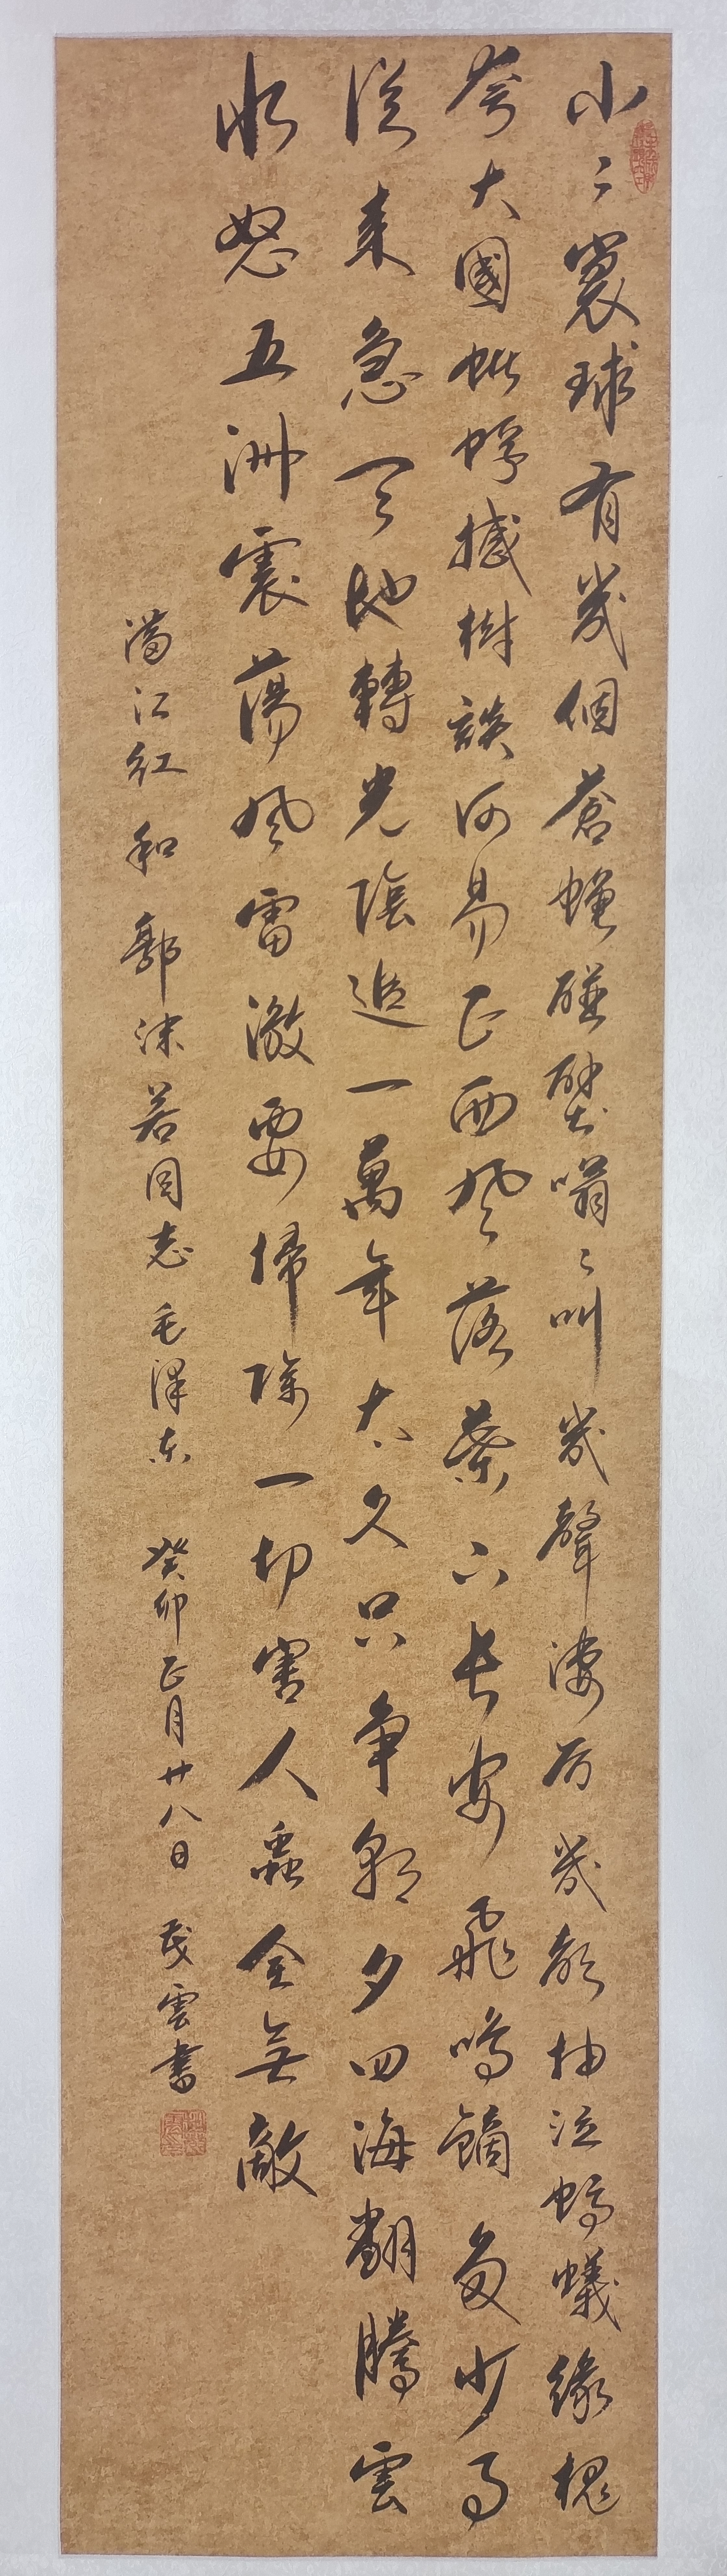 小々寰球有幾個蒼蠅碰壁嗡々叫幾聲淒厉幾聲抽泣螞蟻緣槐
夸大國蚍蜉撼樹談何易正西風落葉下長安飛鳴鏑多少事
從来急天地轉光陰迫一萬年太久只争朝夕四海翻騰雲
水怒五洲震蕩風雷激要掃除一切害人蟲全無敵
满江红和郭沫若同志毛澤東 癸卯正月廿八日 茂雲書